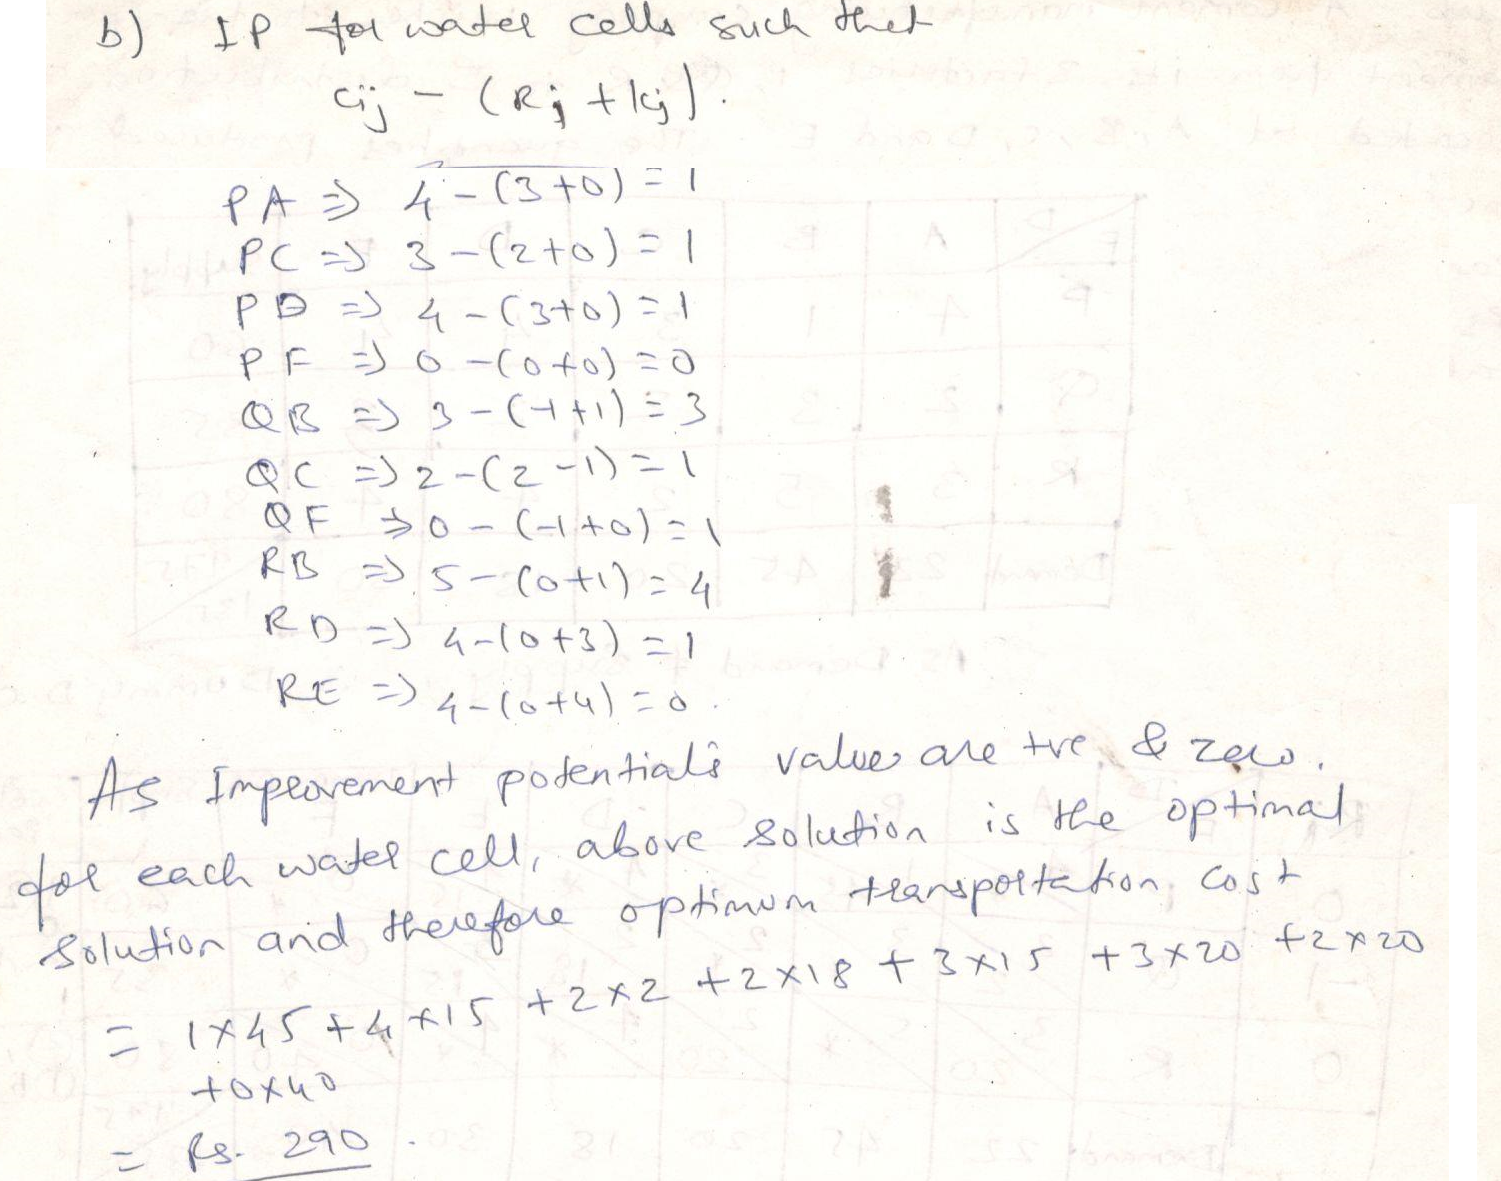 b) IP for water cells such that
cij - (Rj + kj).
PA ⇒ 4 - (3+0) = 1
PC ⇒ 3 - (2+0) = 1
PD ⇒ 4 - (3+0) = 1
PF ⇒ 0 - (0+0) = 0
QB ⇒ 3 - (-1+1) = 3
QC ⇒ 2 - (2-1) = 1
QF ⇒ 0 - (-1+0) = 1
RB ⇒ 5 - (0+1) = 4
RD ⇒ 4 - (0+3) = 1
RE ⇒ 4 - (0+4) = 0.
As Improvement potentials values are +ve & zero.
for each water cell, above solution is the optimal
solution and therefore optimum transportation cost
= 1×45 + 4×15 + 2×2 + 2×18 + 3×15 + 3×20 + 2×20
+0×40
= Rs. 290.